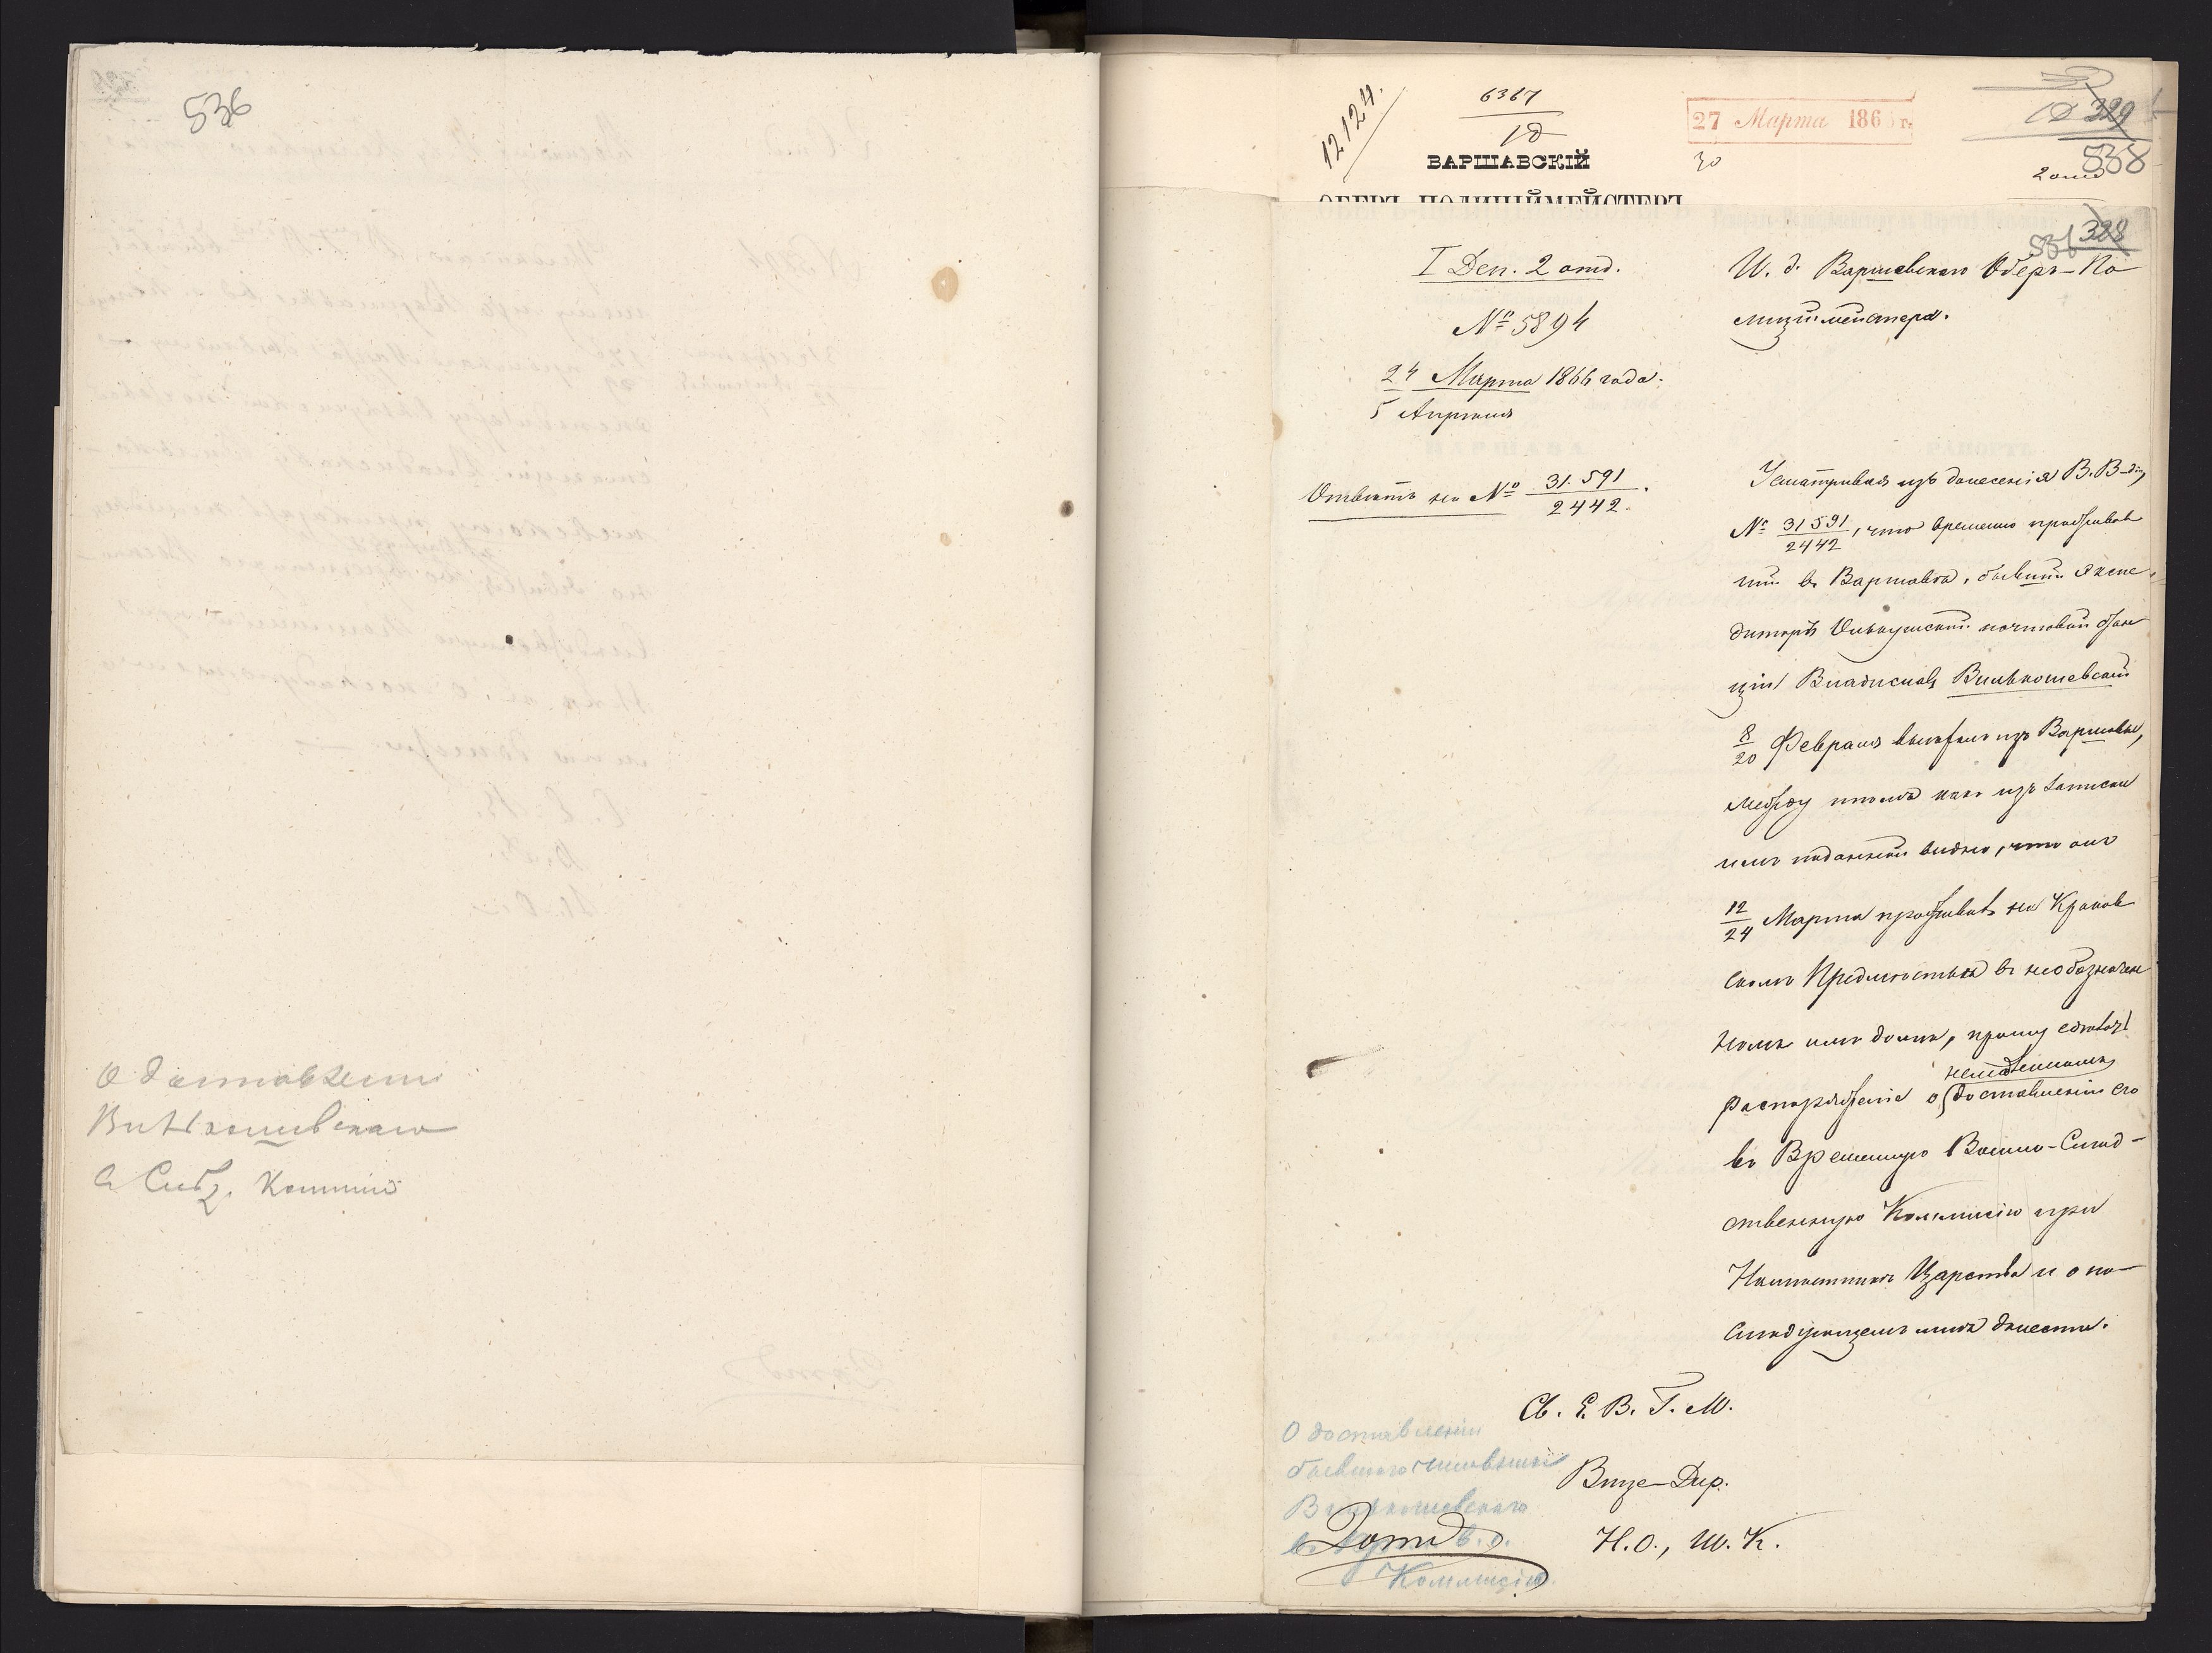 536
О доставлении
Вильконшевскаго
в Слѣд. Коммисію
12124.
6367
10
27 Марта 186 г.
30
ВАРШАВСКІЙ
ОБЕРЪ-ПОЛИЦІЙМЕЙСТЕРЪ
329
538
2 отд
328
I Деп. 2 отд.
№ 5894
24 Марта 1866 года.
5 Апрѣля
Отвѣтъ на № 31.591
2442.
И. д. Варшавскаго Оберъ-По
лицiймейстера.
Усматривая изъ донесенія В. В-дiя,
№ 31591/2442, что временно проживав
шiй въ Варшавѣ, бывшiй Экспе
диторъ Олькушской почтовой стан
цiи Владиславъ Вильконшевскiй
8/20 Февраля выѣхалъ изъ Варшавы,
между тѣмъ какъ изъ записки
имъ поданной видно, что онъ
12/24 Марта проживалъ на Краков
скомъ Предмѣстьѣ въ необозначен
номъ имъ домѣ, прошу сдѣлать
распоряженіе о доставленіи его
въ Временную Военно-Слѣд-
ственную Коммисію при
Намѣстникѣ Царства и о по-
слѣдующемъ мнѣ донести.
Св. Е. В. Г. М.
Вице-Дир.
Н. О., Ш. К.
О доставленіи
бывшаго
Вильконшевскаго
Коммисію